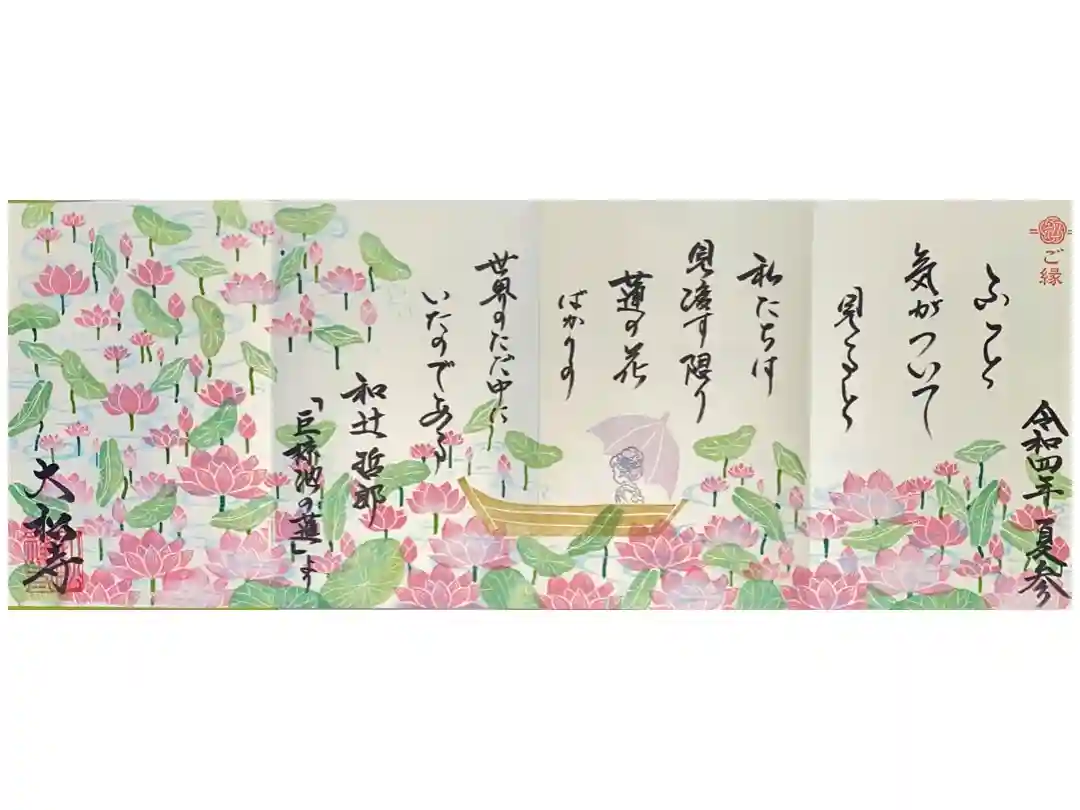 ご縁
令和四年 夏参
ふと
気がついて
見ると
私たちは
見渡す限り
蓮の花
ばかりの
世界のただ中に
いたのである
和辻哲郎
「巨椋池の蓮」より